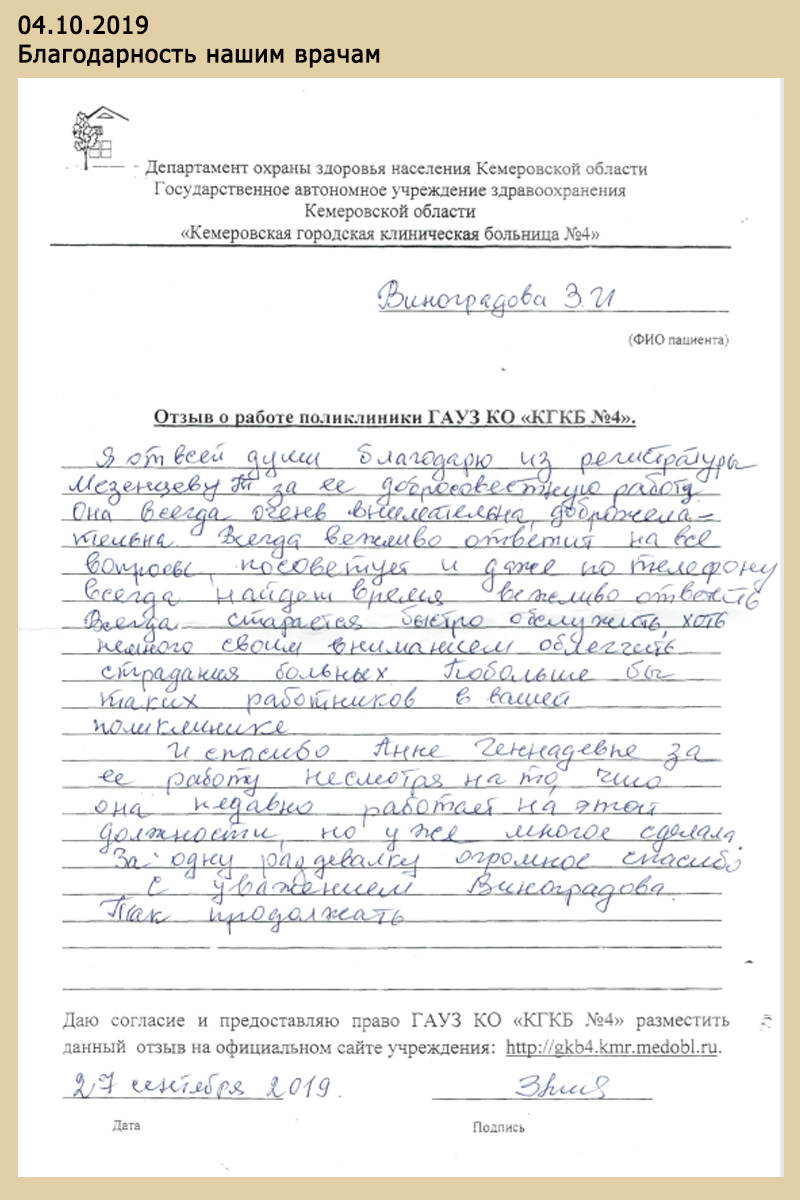 04.10.2019
Благодарность нашим врачам
Департамент охраны здоровья населения Кемеровской области
Государственное автономное учреждение здравоохранения
Кемеровской области
«Кемеровская городская клиническая больница №4»
Виноградова З.И
(ФИО пациента)
Отзыв о работе поликлиники ГАУЗ КО «КГКБ №4».
Я от всей души благодарю из регистратуры
Мезенцеву Т за ее добросовестную работу.
Она всегда очень внимательна, доброжела=
тельна. Всегда вежливо ответит на все
вопросы, посоветует и даже по телефону
всегда найдет время вежливо ответить
Всегда старается быстро обслужить, хоть
немного своим вниманием облегчить
страдания больных. Побольше бы
таких работников в вашей
поликлинике
И спасибо Анне Геннадевне за
ее работу несмотря на то, что
она недавно работает на этой
должности, но уже многое сделала.
За одну раздевалку огромное спасибо
С уважением Виноградова.
Так продолжать
Даю согласие и предоставляю право ГАУЗ КО «КГКБ №4» разместить
данный отзыв на официальном сайте учреждения: http://gkb4.kmr.medobl.ru.
27 сентября 2019.
Дата Подпись